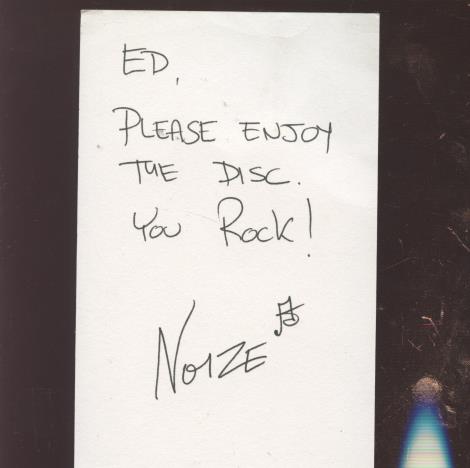 ED,
PLEASE ENJOY
THE DISC.
YOU ROCK!
NOIZE